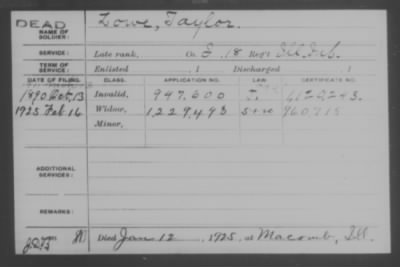 DEAD
NAME OF SOLDIER: Lowe, Taylor.
SERVICE: Late rank, Co. E, 18 Reg't Ill. Inf.
TERM OF SERVICE: Enlisted , 1 Discharged , 1
DATE OF FILING. CLASS. APPLICATION NO. LAW. CERTIFICATE NO.
1890 Oct, 13 Invalid, 947.600
1925 Feb 16 Widow, 1229498
Minor,
ADDITIONAL SERVICES:
REMARKS:
Died Jan 12, 1925, at Macomb, Ill.